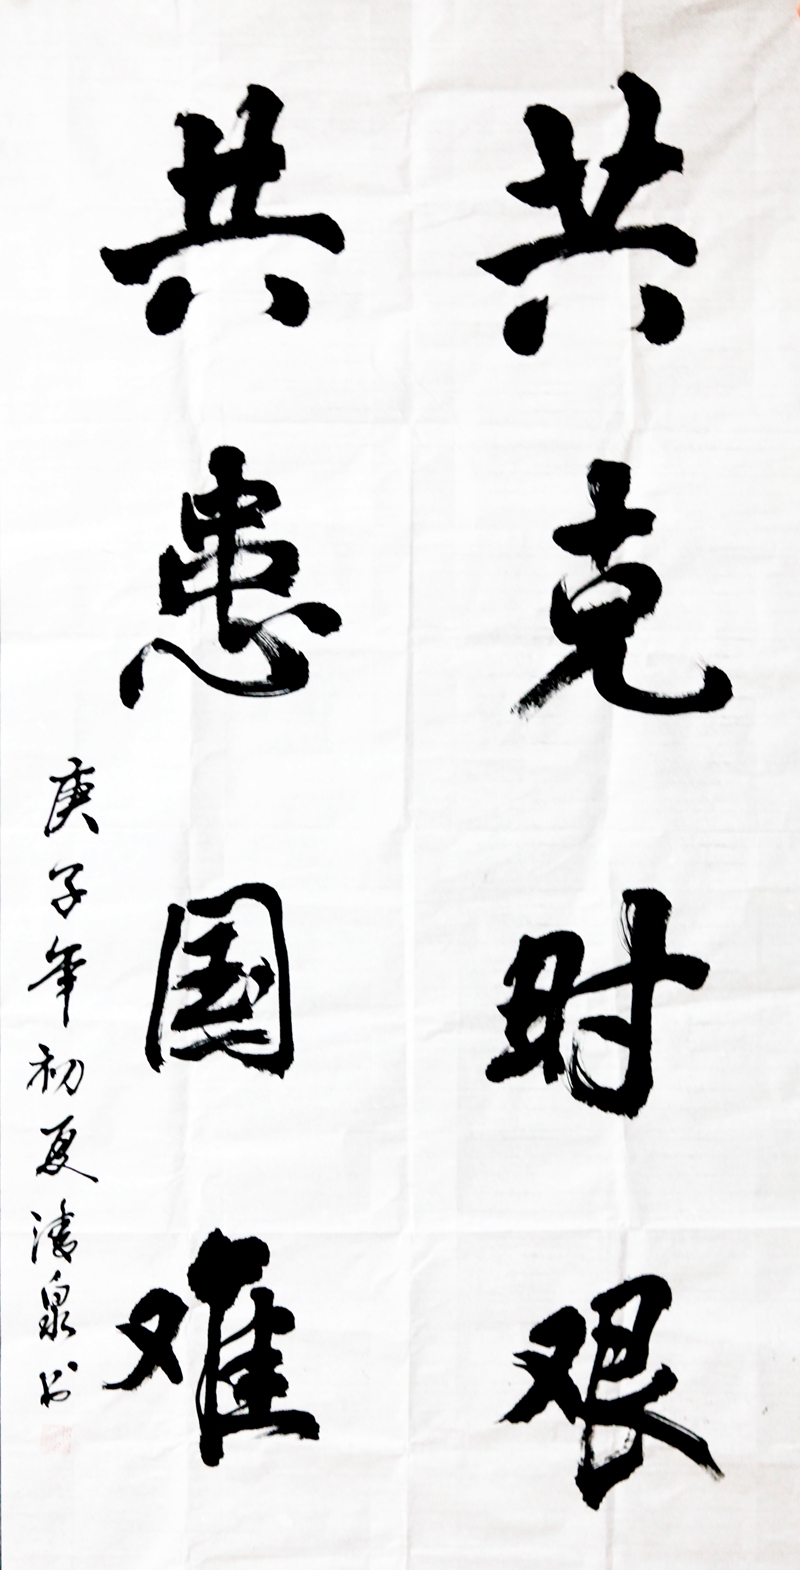 共克时艰
共患国难
庚子年初夏清泉书